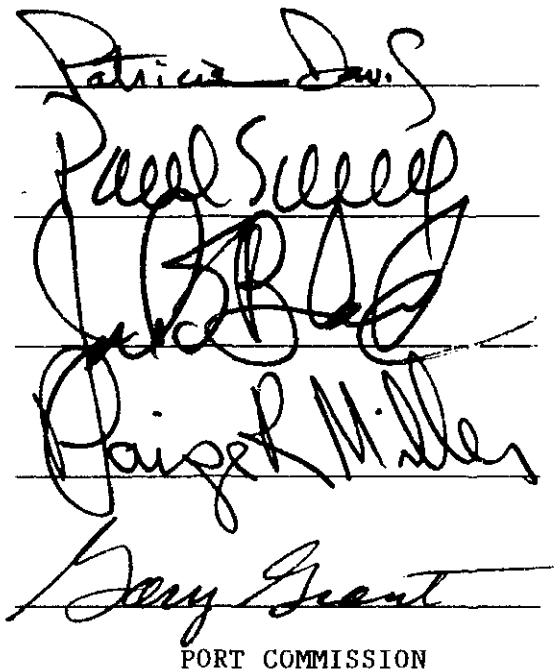 Patricia Davis
Paul Schell
Jack Block
Paige R Miller
Gary Grant
PORT COMMISSION